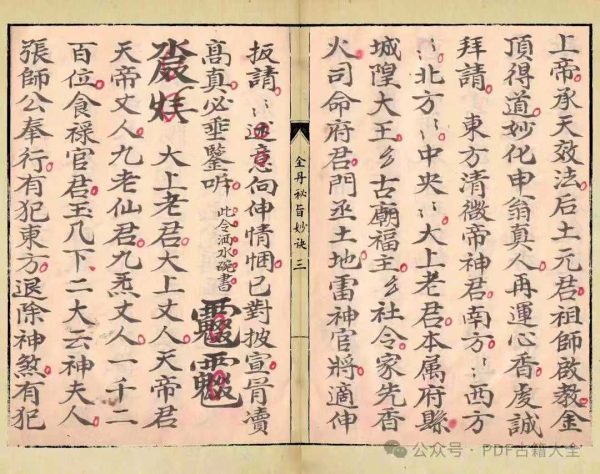 上帝承天效法后土元君祖師啟教金
頂得道妙化申翁真人再運心香虔誠
拜請 東方清微帝神君南方〻西方
〻北方〻中央〻大上老君本属府縣
城隍大王〻古廟福主〻社令家先香
火司命府君門丞土地雷神官將適伸
全丹秘旨妙訣 三
扳請〻意向伸情悃已對披宣骨凟
高真必垂鑒听 此令洒水碗書
大上老君大上丈人天帝君
天帝丈人九老仙君九炁丈人一千二
百位食禄官君玉几下二大云神夫人
張師公奉行有犯東方退除神煞有犯
公众号 · PDF古籍大全